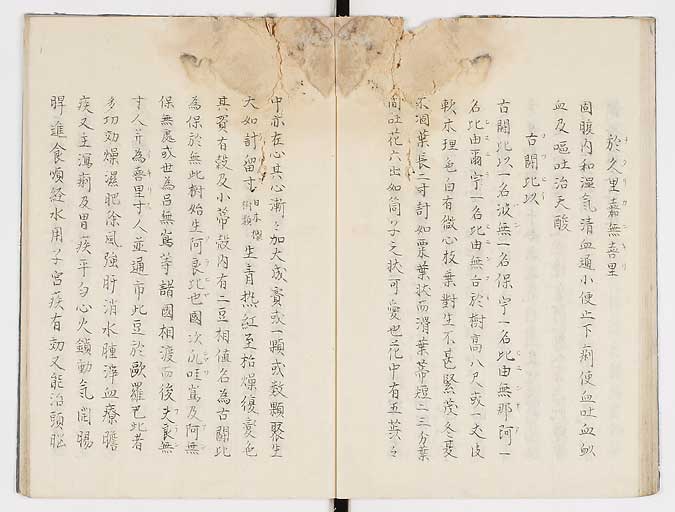 於久里嘉無喜里
固腹内和湿気清血通小便止下痢便血吐血衂
血及嘔吐治天酸
古闘比以
古闘比以一名波無一名保宇一名比由無那阿一
名比由爾宇一名比由無古於樹高八尺或一丈皮
軟木理色白有微心枝葉對生不甚緊茂冬夏
不凋葉長二寸計如栗葉状而滑葉蒂短二三分葉
間吐花六出如筒子之状可愛也花中有五蕊
中亦在心其心漸々加大成實或一顆或数顆聚生
大如計留寸 日本 生青熟紅至枯燥後変色
其實有殻及小蒂殻内有二豆相値名為古闘比
為保於無此樹始生阿良比也國次
保無 或世為呂無 等諸國相渡而後
寸人并為喜里寸人並通市此豆於歐羅巴此者
多功効燥濕肥除風強肝消水腫滓血療膽
疾又主瀉痢及胃疾平匀心火鎮動気
脾進食順経水用子宮疾有効又能治頭脳